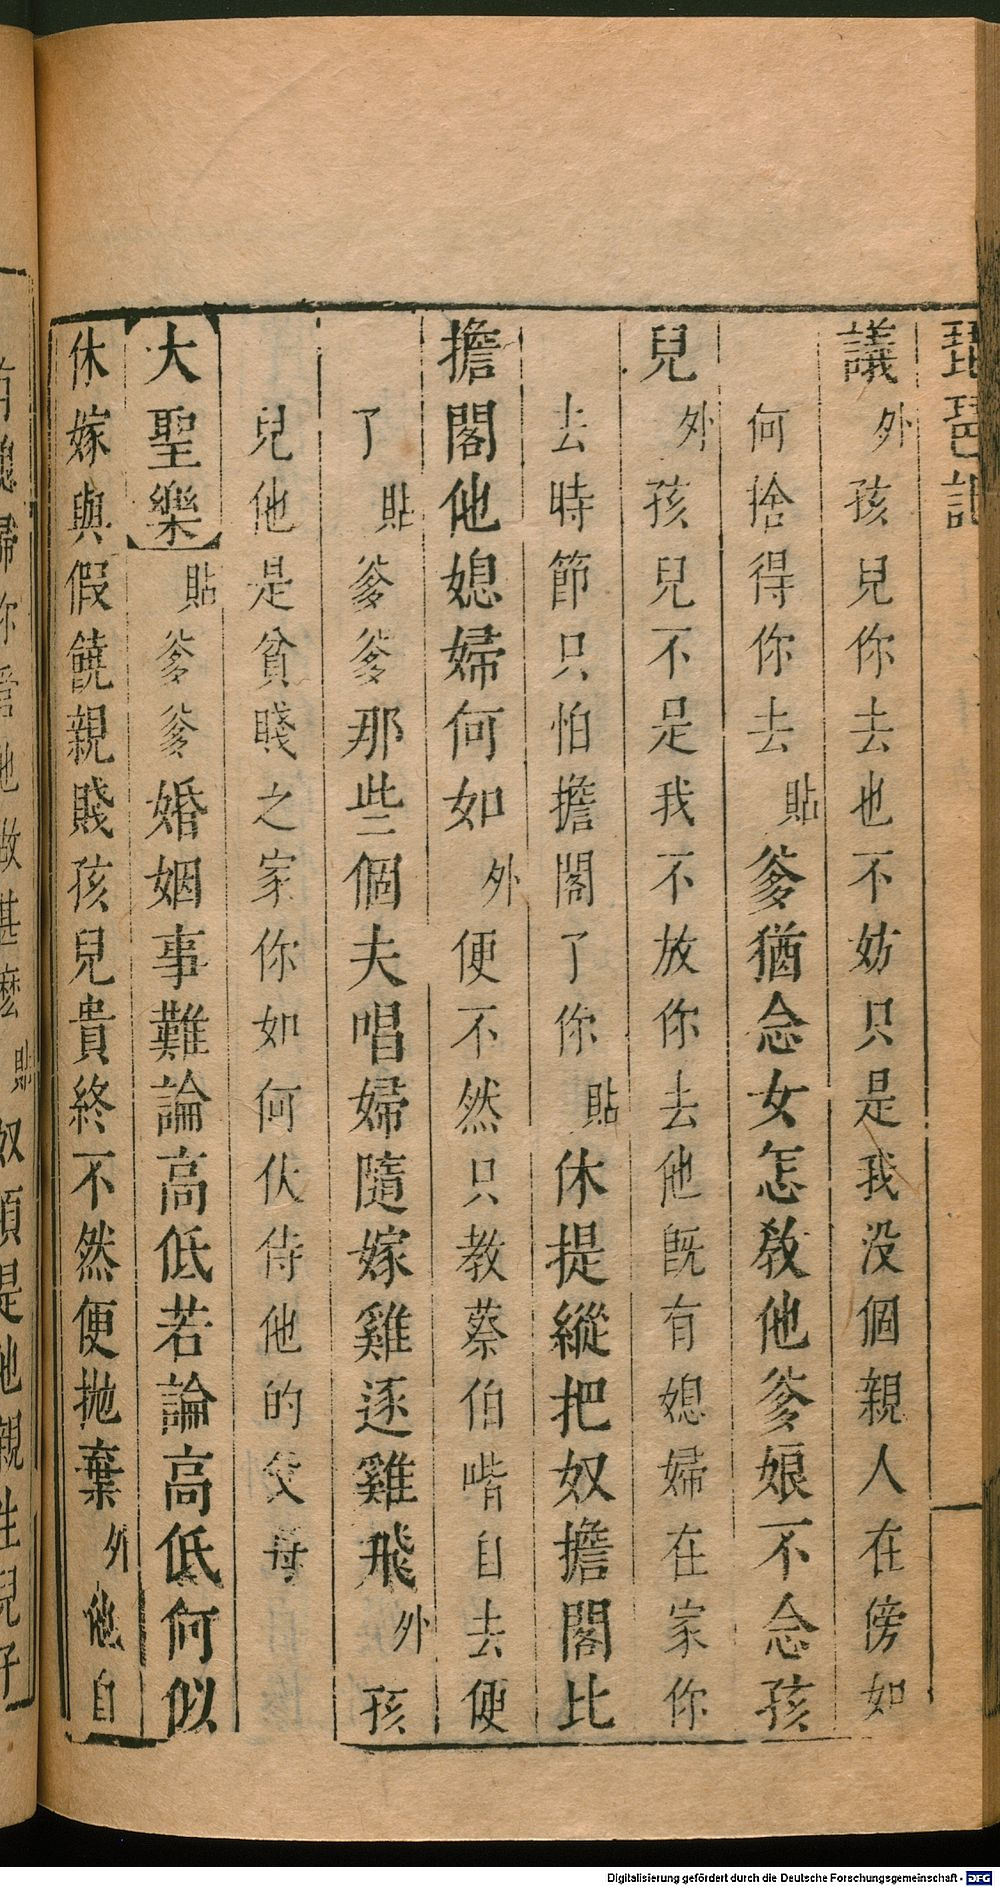 琵琶記
議外孩兒你去也不妨只是我没個親人在傍如
何捨得你去貼爹猶念女怎教他爹娘不念孩
兒外孩兒不是我不放你去他既有媳婦在家你
去時節只怕擔閣了你貼休提縱把奴擔閣比
擔閣他媳婦何如外便不然只教蔡伯喈自去便
了貼爹爹那些個夫唱婦隨嫁雞逐雞飛外孩
兒他是貧賤之家你如何伏侍他的父母
大聖樂貼爹爹婚姻事難論高低若論高低何似
休嫁與假饒親賤孩兒貴終不然便抛棄外他自
媳婦你管他做甚麽貼奴須是他親生兒子
Digitalisierung gefördert durch die Deutsche Forschungsgemeinschaft - DFG